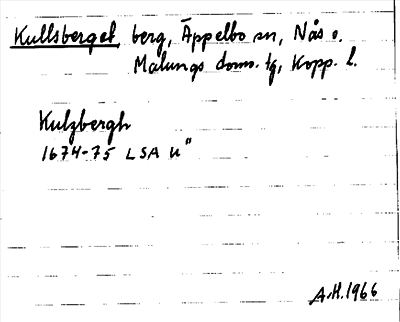 Kullsberget, berg, Äppelbo sn, Nås o.
Malungs doms. tg, Kopp. l.
Kulzbergh
1674-75 LSA U"
A.H.1966